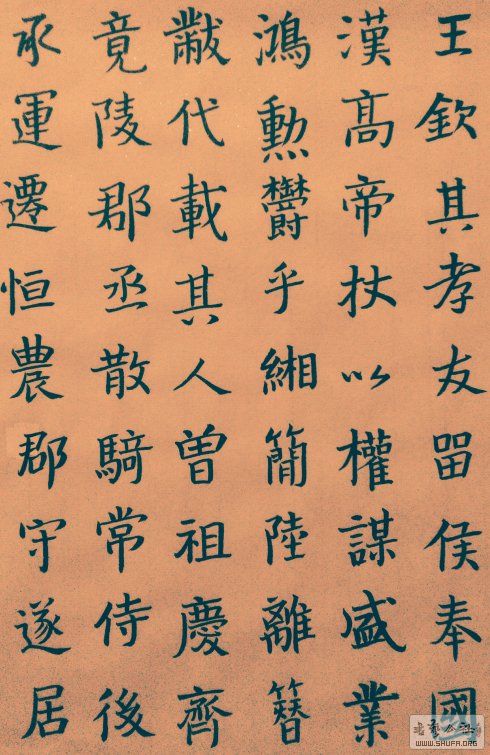 王欽其孝友留侯奉國
漢高帝杖以權謀盛業
鴻勳欝乎緗簡陸離簪
黻代載其人曽祖慶齊
竟陵郡丞散騎常侍後
承運遷恒農郡守遂居
WWW.SHUFA.ORG